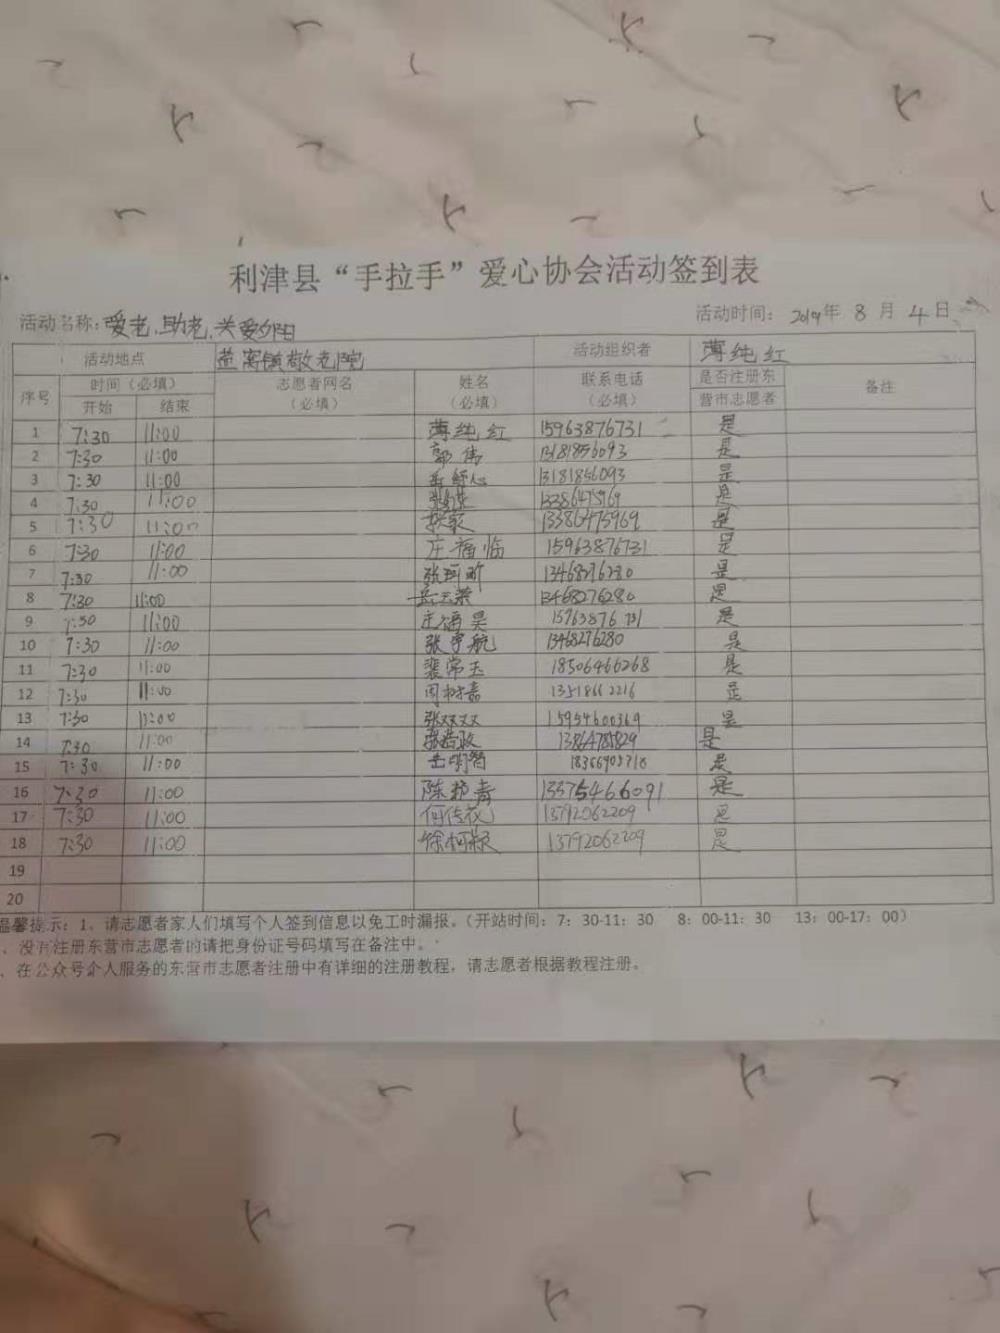 利津县“手拉手”爱心协会活动签到表
活动名称：爱老、助老、关爱夕阳 活动时间： 2019年 8 月 4 日
活动地点 盐窝镇敬老院 活动组织者 薄纯红
序号 时间（必填） 志愿者网名（必填） 姓名（必填） 联系电话（必填） 是否注册东营市志愿者 备注
开始 结束
1 7:30 11:00 薄纯红 15963876731 是
2 7:30 11:00 郭伟 13181856093 是
3 7:30 11:00 13181856093 是
4 7:30 11:00 13386475969 是
5 7:30 11:00 13386475969 是
6 7:30 11:00 庄福临 15963876731 是
7 7:30 11:00 张珂昕 13468276280 是
8 7:30 11:00 岳云荣 13468276280 是
9 7:30 11:00 庄福昊 15963876731 是
10 7:30 11:00 张宇航 13468276280 是
11 7:30 11:00 裴常玉 18506466268 是
12 7:30 11:00 周树嘉 13518662216 是
13 7:30 11:00 张双双 15954600369 是
14 7:30 11:00 13864785829 是
15 7:30 11:00 是
16 7:30 11:00 陈护青 13375466091 是
17 7:30 11:00 何传花 13792062209 是
18 7:30 11:00 徐柯颖 13792062209 是
19
20
温馨提示：1、请志愿者家人们填写个人签到信息以免工时漏报。（开站时间：7：30-11：30 8：00-11：30 13：00-17：00）
、没有注册东营市志愿者的请把身份证号码填写在备注中。
、在公众号个人服务的东营市志愿者注册中有详细的注册教程，请志愿者根据教程注册。